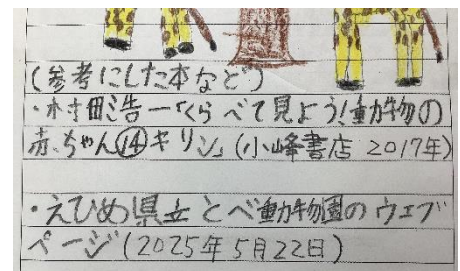 (参考にした本など)
・村田浩一「くらべて見よう!動物の
赤ちゃん⑭キリン」(小峰書店 2017年)
・えひめ県立とべ動物園のウェブ
ページ(2025年5月22日)